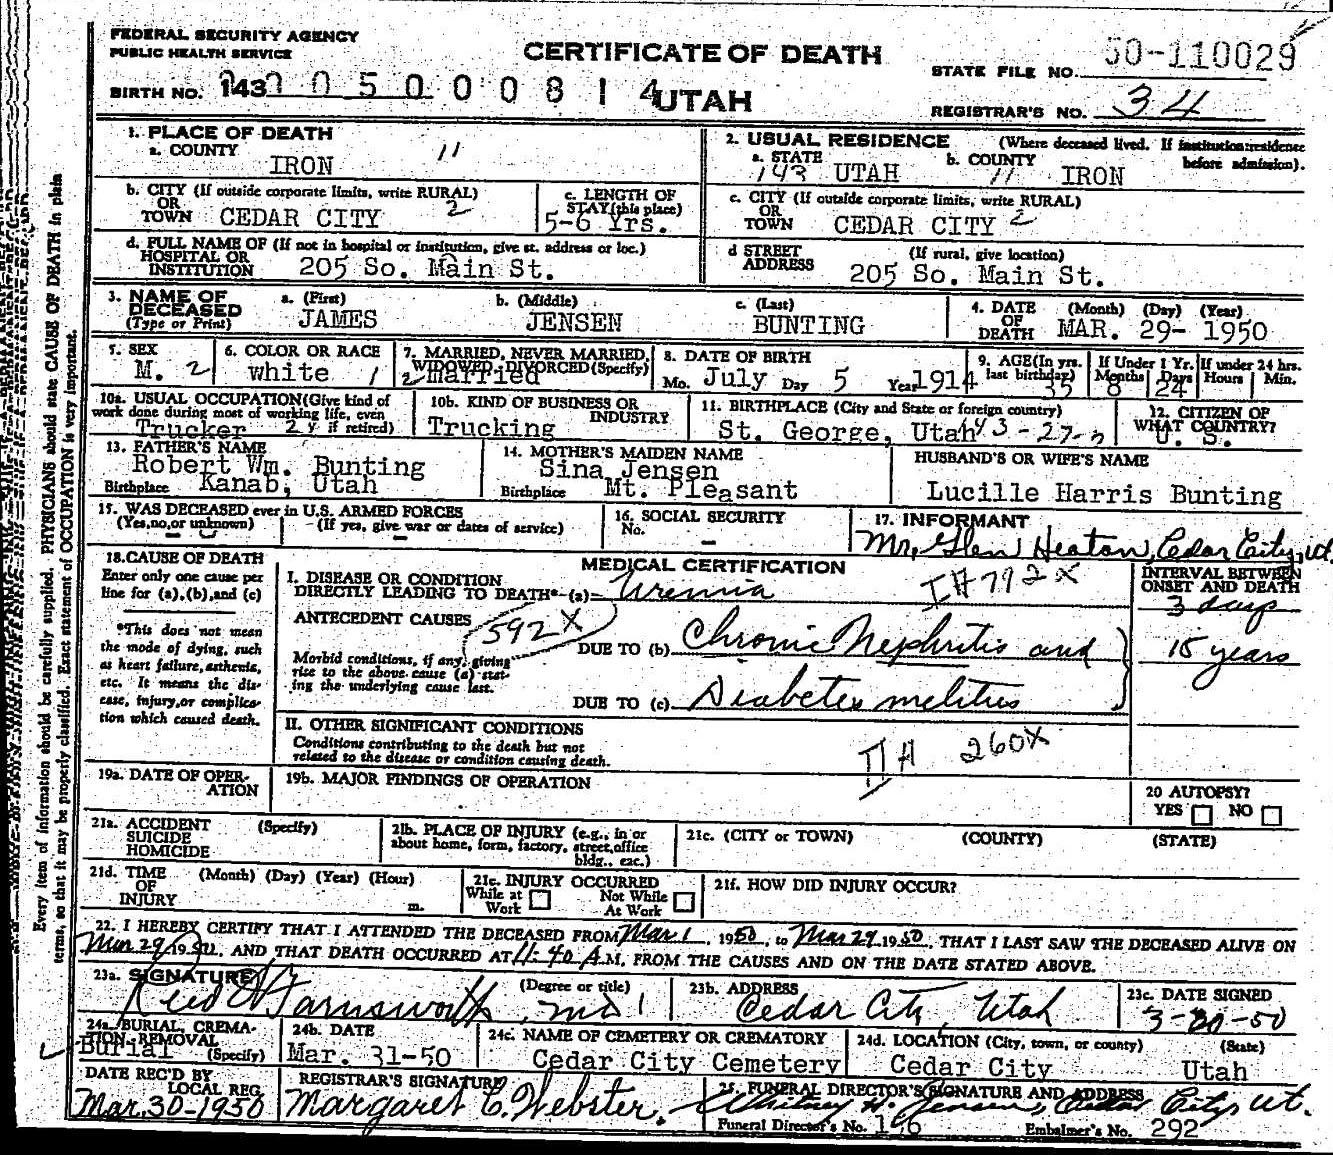 FEDERAL SECURITY AGENCY
PUBLIC HEALTH SERVICE
CERTIFICATE OF DEATH
STATE FILE NO. 50-110029
BIRTH NO. 143 0 5 0 0 0 8 1 4 UTAH
REGISTRAR'S NO. 34
1. PLACE OF DEATH
a. COUNTY IRON 11
2. USUAL RESIDENCE (Where deceased lived. If institution: residence before admission).
a. STATE 143 UTAH b. COUNTY 11 IRON
b. CITY (If outside corporate limits, write RURAL) OR TOWN CEDAR CITY 2
c. LENGTH OF STAY (this place) 5-6 Yrs.
c. CITY (If outside corporate limits, write RURAL) OR TOWN CEDAR CITY 2
d. FULL NAME OF (If not in hospital or institution, give st. address or loc.) HOSPITAL OR INSTITUTION 205 So. Main St.
d STREET ADDRESS (If rural, give location) 205 So. Main St.
3. NAME OF DECEASED (Type or Print) a. (First) JAMES b. (Middle) JENSEN c. (Last) BUNTING
4. DATE OF DEATH (Month) (Day) (Year) MAR. 29- 1950
5. SEX M. 2
6. COLOR OR RACE white 1
7. MARRIED, NEVER MARRIED, WIDOWED, DIVORCED (Specify) 2 Married
8. DATE OF BIRTH Mo. July Day 5 Year 1914
9. AGE (In yrs. last birthday) 35 If Under 1 Yr. Months 8 Days 24 If under 24 hrs. Hours Min.
10a. USUAL OCCUPATION (Give kind of work done during most of working life, even if retired) Trucker
10b. KIND OF BUSINESS OR INDUSTRY Trucking
11. BIRTHPLACE (City and State or foreign country) St. George, Utah
12. CITIZEN OF WHAT COUNTRY? U. S.
13. FATHER'S NAME Robert Wm. Bunting
Birthplace Kanab, Utah
14. MOTHER'S MAIDEN NAME Sina Jensen
Birthplace Mt. Pleasant
HUSBAND'S OR WIFE'S NAME
Lucille Harris Bunting
15. WAS DECEASED ever in U.S. ARMED FORCES
(Yes, no, or unknown) - (If yes, give war or dates of service) -
16. SOCIAL SECURITY No. -
17. INFORMANT
Mr. Glen Heaton, Cedar City, Ut.
18. CAUSE OF DEATH
Enter only one cause per line for (a), (b), and (c)
*This does not mean the mode of dying, such as heart failure, asthenia, etc. It means the disease, injury, or complication which caused death.
MEDICAL CERTIFICATION
I. DISEASE OR CONDITION DIRECTLY LEADING TO DEATH* (a) Uremia
792X
INTERVAL BETWEEN ONSET AND DEATH
3 days
ANTECEDENT CAUSES 592X
Morbid conditions, if any, giving rise to the above cause (a) stating the underlying cause last.
DUE TO (b) Chronic Nephritis and
15 years
DUE TO (c) Diabetes melitus
II. OTHER SIGNIFICANT CONDITIONS
Conditions contributing to the death but not related to the disease or condition causing death.
II A 260X
19a. DATE OF OPERATION
19b. MAJOR FINDINGS OF OPERATION
20 AUTOPSY?
YES NO
21a. ACCIDENT SUICIDE HOMICIDE (Specify)
21b. PLACE OF INJURY (e.g., in or about home, form, factory, street, office bldg., exc.)
21c. (CITY or TOWN) (COUNTY) (STATE)
21d. TIME OF INJURY (Month) (Day) (Year) (Hour) m.
21e. INJURY OCCURRED
While at Work Not While At Work
21f. HOW DID INJURY OCCUR?
22. I HEREBY CERTIFY THAT I ATTENDED THE DECEASED FROM Mar 1, 1950, to Mar 29 1950, THAT I LAST SAW THE DECEASED ALIVE ON
Mar 29 1950, AND THAT DEATH OCCURRED AT 11:40 A.M. FROM THE CAUSES AND ON THE DATE STATED ABOVE.
23a. SIGNATURE (Degree or title)
Reed Farnsworth MD
23b. ADDRESS
Cedar City, Utah
23c. DATE SIGNED
3-30-50
24a. BURIAL, CREMATION, REMOVAL (Specify) Burial
24b. DATE
Mar. 31-50
24c. NAME OF CEMETERY OR CREMATORY
Cedar City Cemetery
24d. LOCATION (City, town, or county) (State)
Cedar City Utah
DATE REC'D BY LOCAL REG.
Mar. 30-1950
REGISTRAR'S SIGNATURE
Margaret C. Webster.
25. FUNERAL DIRECTOR'S SIGNATURE AND ADDRESS
Whitney H. Jensen, Cedar City, Ut.
Funeral Director's No. 176 Embalmer's No. 292
Every item of information should be carefully supplied. PHYSICIANS should state CAUSE OF DEATH in plain
terms, so that it may be properly classified. Exact statement of OCCUPATION is very important.